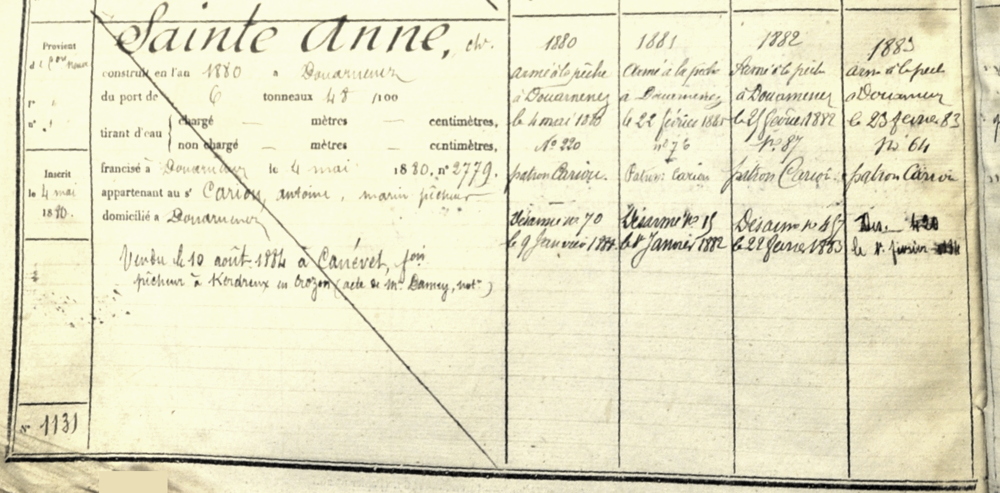 Provient
Sainte Anne, ch.
construit en l'an 1880 a Douarnenez
du port de 6 tonneaux 48 /100
tirant d'eau { chargé — mètres — centimètres,
non chargé — mètres — centimètres,
francisé à Douarnenez le 4 mai 1880, n° 2779.
appartenant au sr Cariou, antoine, marin pêcheur
domicilié a Douarnenez
Vendu le 10 août 1884 à Canévet, Jean
pêcheur à Kerdreux en Crozon (acte de Me Damey, notre)
Inscrit
le 4 mai
1880.
N° 1131
1880
armé à la pêche
à Douarnenez
le 4 mai 1880
N° 220
patron Cariou.
Désarmé n° 70
le 9 Janvier 1881
1881
Armé à la pêche
a Douarnenez
le 22 février 1881
n° 76
Patron Cariou
Désarmé n° 15
le 8 Janvier 1882
1882
Armé à la pêche
à Douarnenez
le février 1882
N° 87
patron Cariou.
Désarmé n°
le 22 février 1883
1883
arm à la pech
a Douarnenez
le 23 février 83
N° 64
patron Cariou
Des. 420
le février